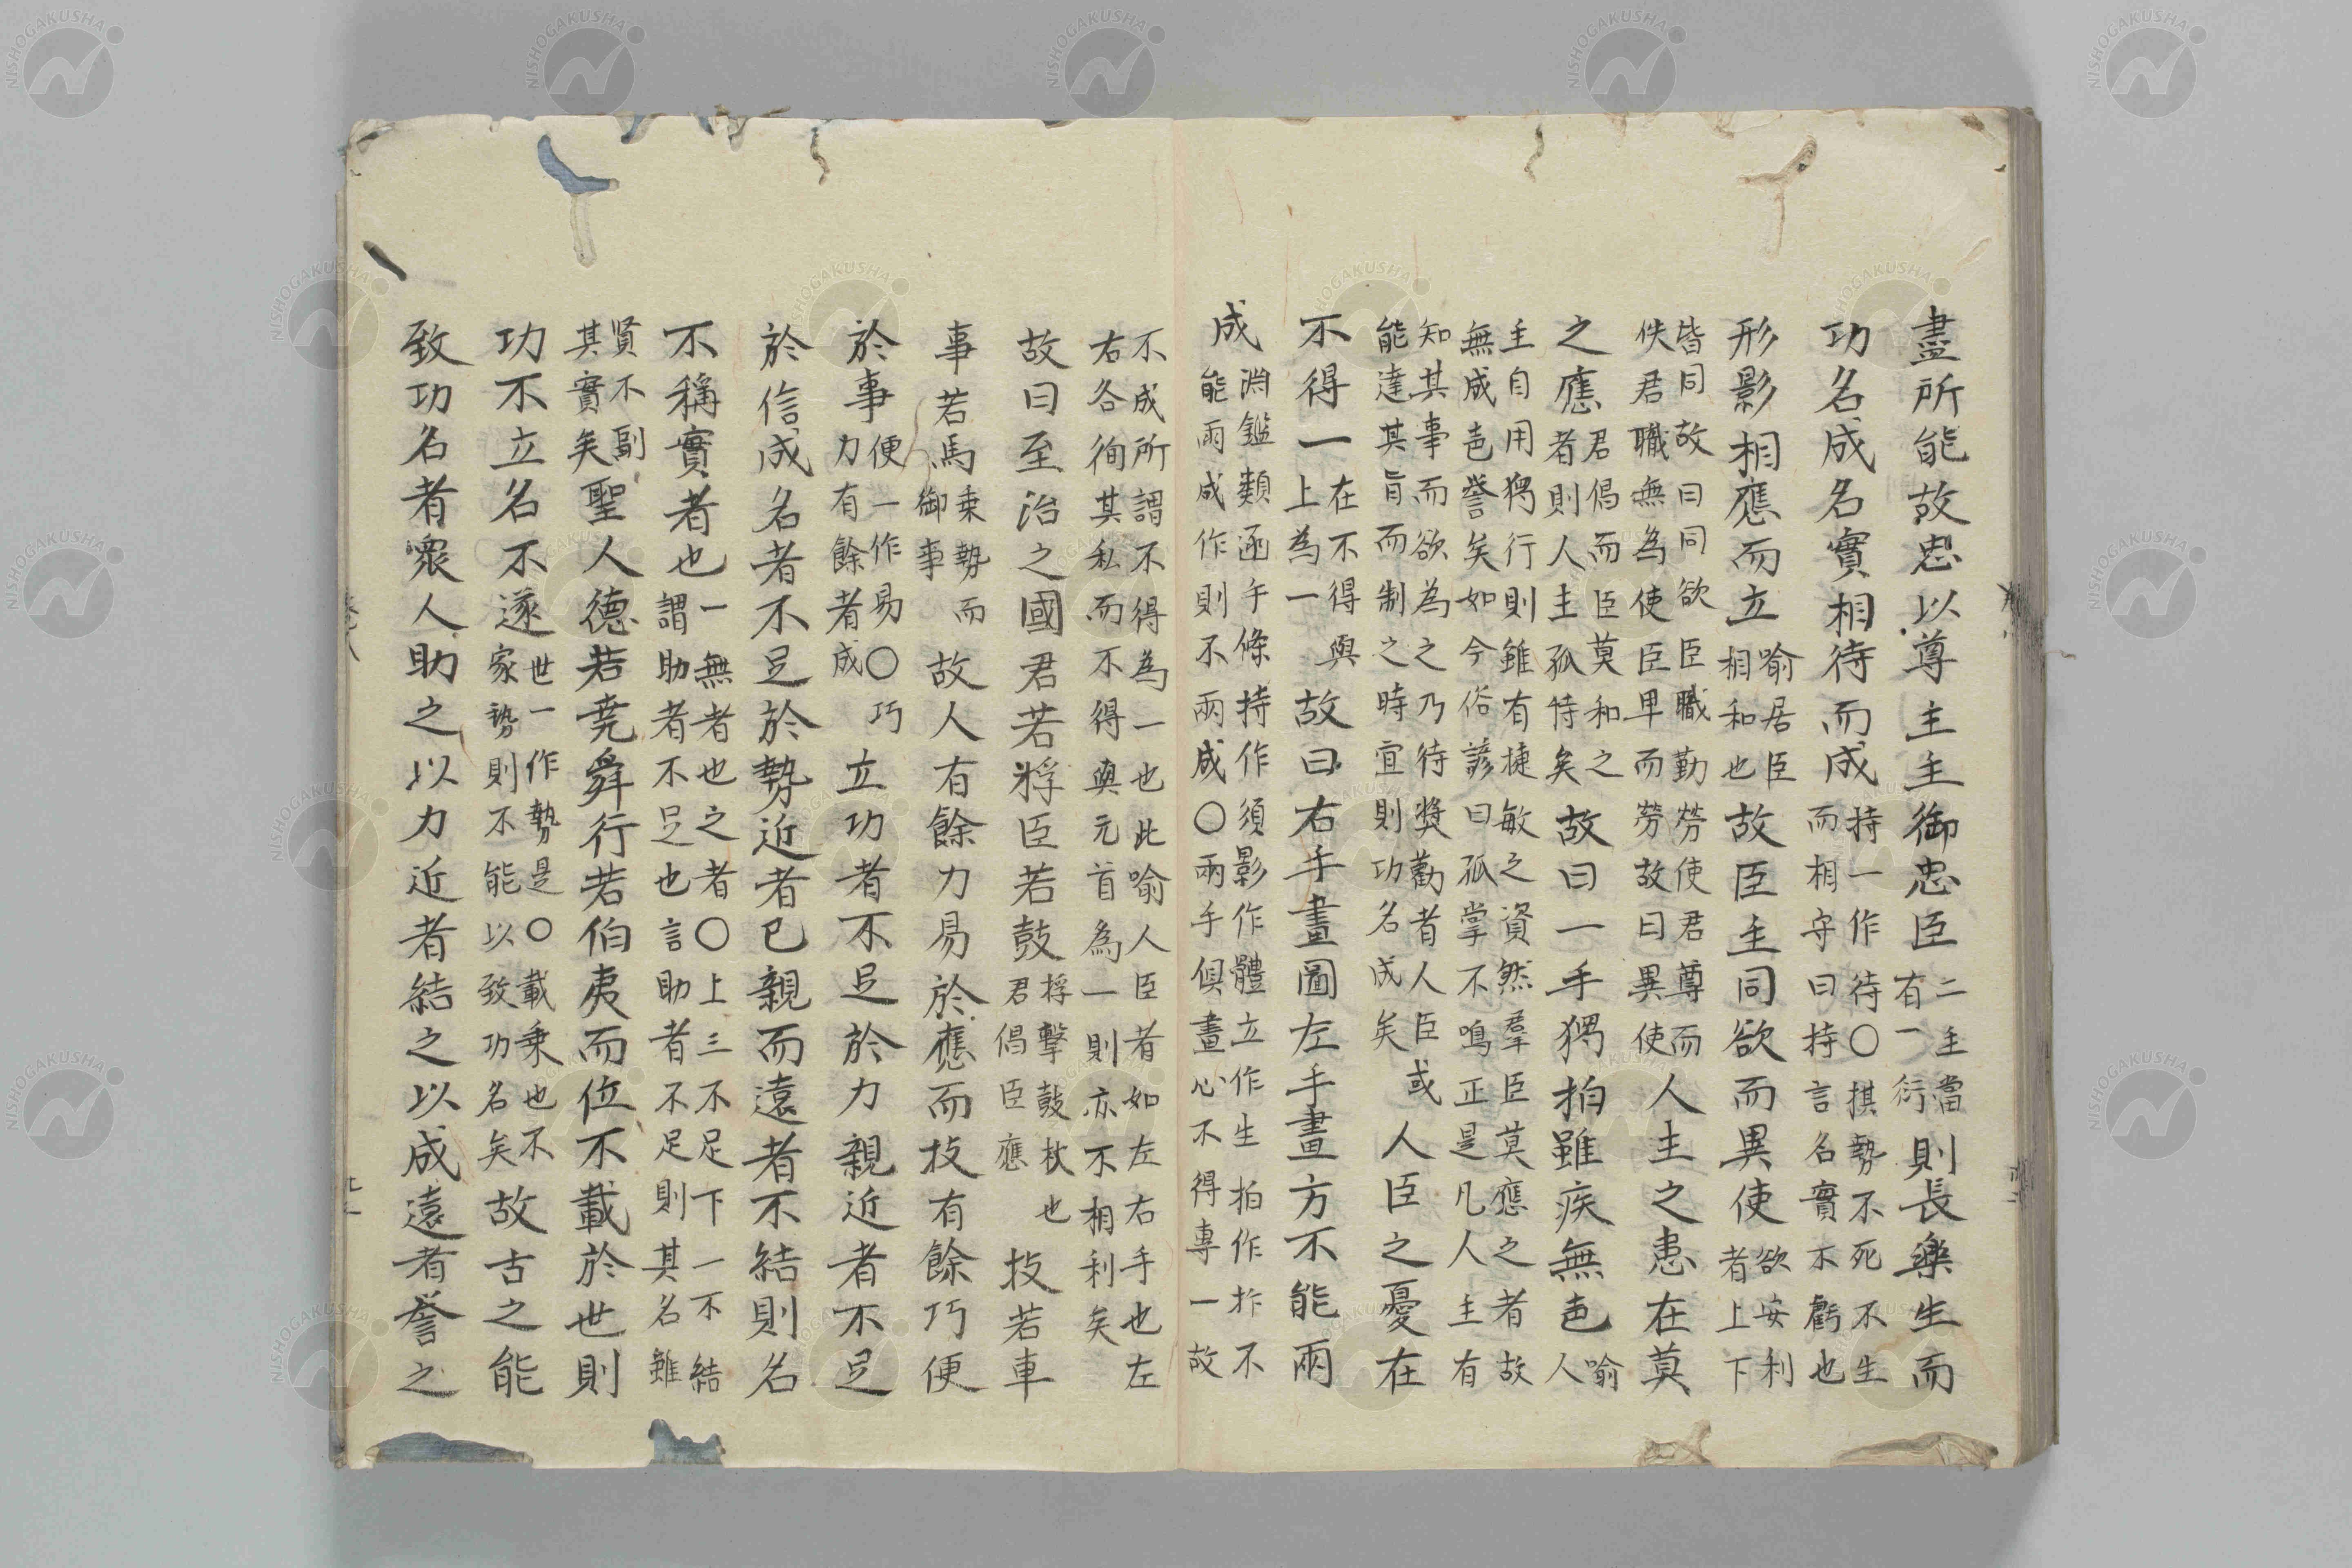 盡所能故忠以尊主主御忠臣二主當有一衍則長樂生而
功名成名實相待而成持一作待〇棋勢不死不生而相守曰持言名實不虧也
形影相應而立喻居臣相和也故臣主同欲而異使欲安利者上下
皆同故曰同欲臣職勤勞使君尊而佚君職無為使臣卑而勞故曰異使人主之患在莫
之應君倡而臣莫和之者則人主孤特矣故曰一手獨拍雖疾無㐫喻人
主自用獨行則雖有捷敏之資然羣臣莫應之者故無成㐫譽矣如今俗諺曰孤掌不鳴正是凡人主有
知其事而欲為之乃待獎勸者人臣或能達其旨而制之時宜則功名成矣人臣之憂在
不得一在不得與上為一故曰右手畫圖左手畫方不能兩
成淵鑑類函手條持作須影作體立作生拍作拃不能兩成作則不兩成〇兩手俱畫心不得專一故
不成所謂不得為一也此喻人臣者如左右手也左右各徇其私而不得與元首為一則亦不相利矣
故曰至治之國君若桴臣若鼓桴擊鼓杖也君倡臣應技若車
事若馬乗勢而御事故人有餘力易於應而技有餘巧便
於事便一作易〇巧力有餘者成立功者不足於力親近者不足
於信成名者不足於勢近者已親而遠者不結則名
不稱實者也一無者也之者〇上三不足下一不結謂助者不足也言助者不足則其名雖
賢不副其實矣聖人德若堯舜行若伯夷而位不載於世則
功不立名不遂世一作勢是〇載乗也不家勢則不能以致功名矣故古之能
致功名者衆人助之以力近者結之以成遠者誉之
NISHOGAKUSHA